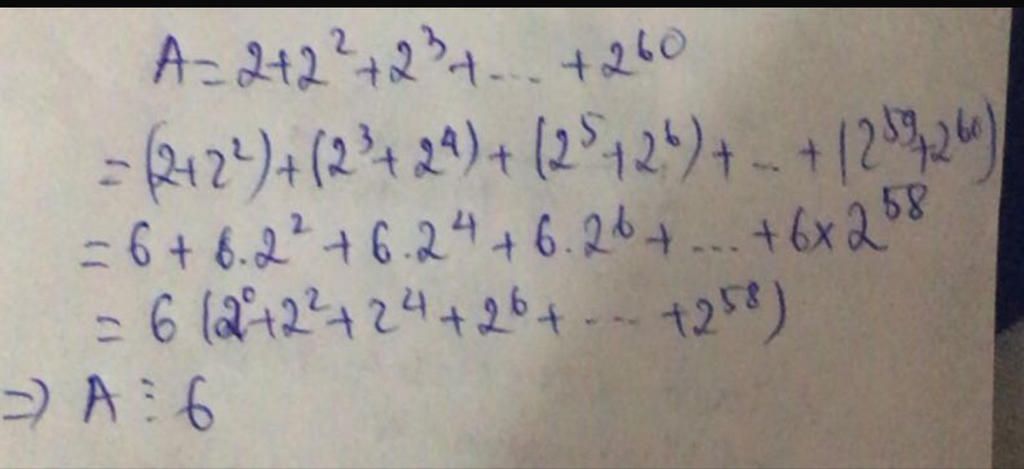 A = 2+2² +2³ +... +2⁶⁰
= (2+2²)+(2³+2⁴)+(2⁵+2⁶)+...+(2⁵⁹+2⁶⁰)
= 6 + 6.2² + 6.2⁴ + 6.2⁶ + ... + 6×2⁵⁸
= 6 (2⁰+2²+2⁴+2⁶+ ... +2⁵⁸)
=> A ⋮ 6